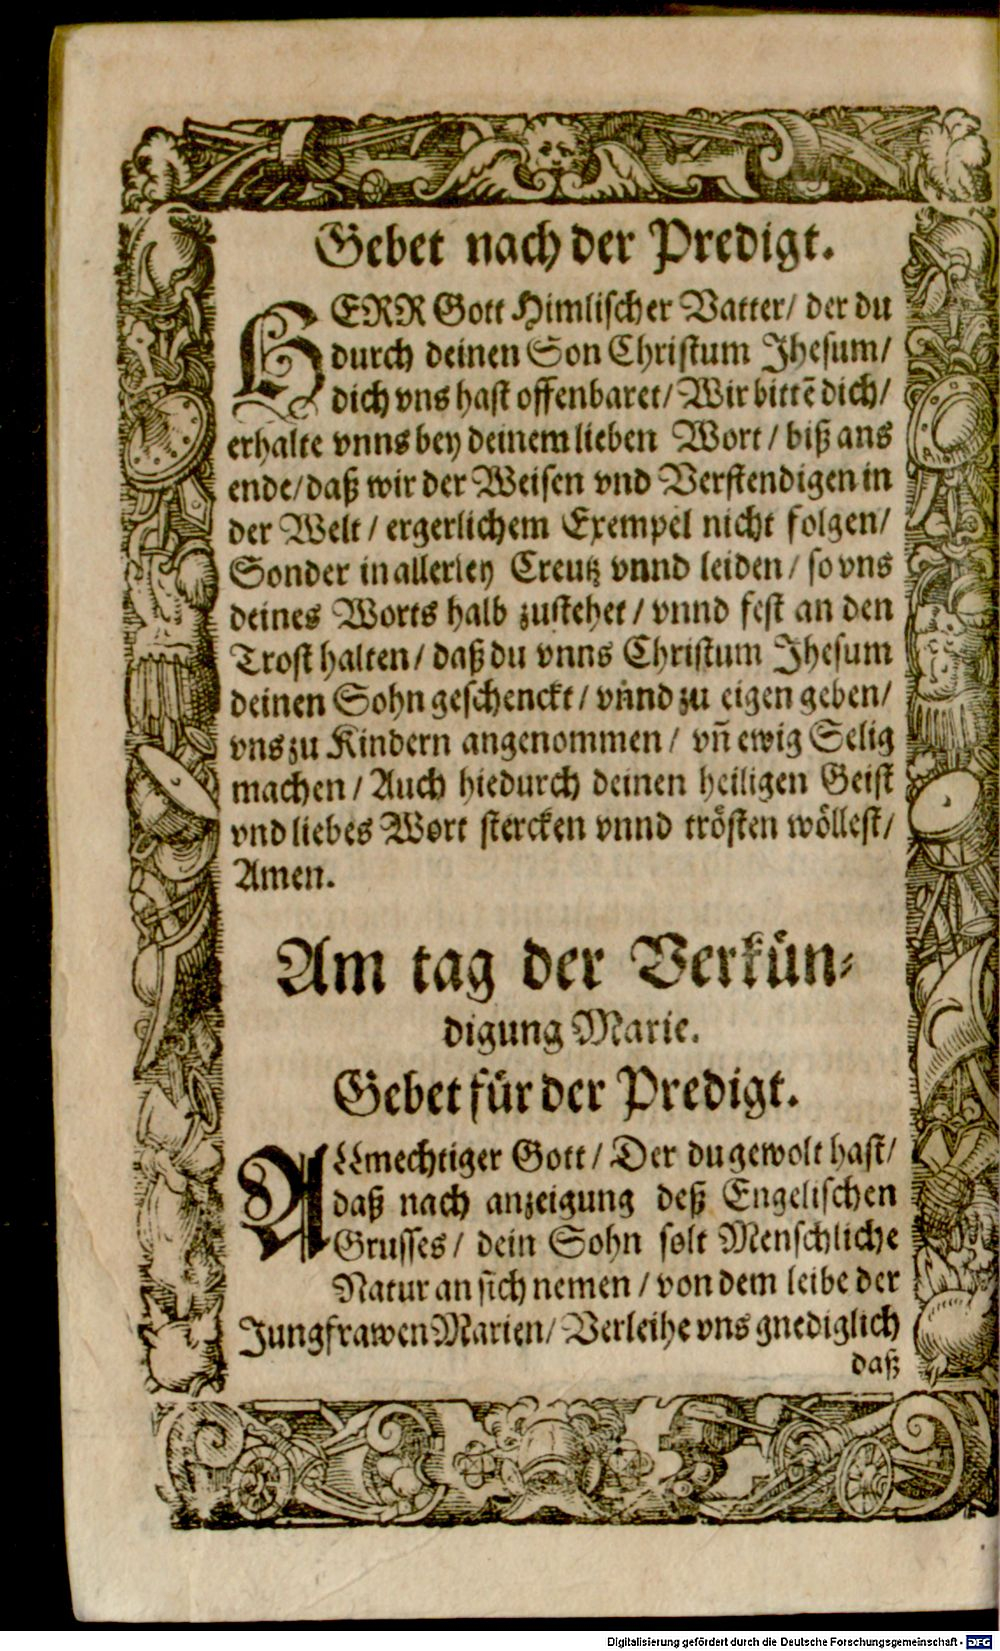 Gebet nach der Predigt.
HERR Gott Himlischer Vatter/ der du
durch deinen Son Christum Jhesum/
dich vns hast offenbaret/ Wir bittē dich/
erhalte vnns bey deinem lieben Wort / biß ans
ende/ daß wir der Weisen vnd Verstendigen in
der Welt / ergerlichem Exempel nicht folgen/
Sonder in allerley Creutz vnnd leiden / so vns
deines Worts halb zustehet / vnnd fest an den
Trost halten / daß du vnns Christum Jhesum
deinen Sohn geschenckt / vnnd zu eigen geben/
vns zu Kindern angenommen / vñ ewig Selig
machen / Auch hiedurch deinen heiligen Geist
vnd liebes Wort stercken vnnd trösten wöllest/
Amen.
Am tag der Verkün-
digung Marie.
Gebet für der Predigt.
ALLmechtiger Gott/ Der du gewolt hast/
daß nach anzeigung deß Engelischen
Grusses/ dein Sohn solt Menschliche
Natur an sich nemen / von dem leibe der
Jungfrawen Marien/ Verleihe vns gnediglich
daß
Digitalisierung gefördert durch die Deutsche Forschungsgemeinschaft - DFG